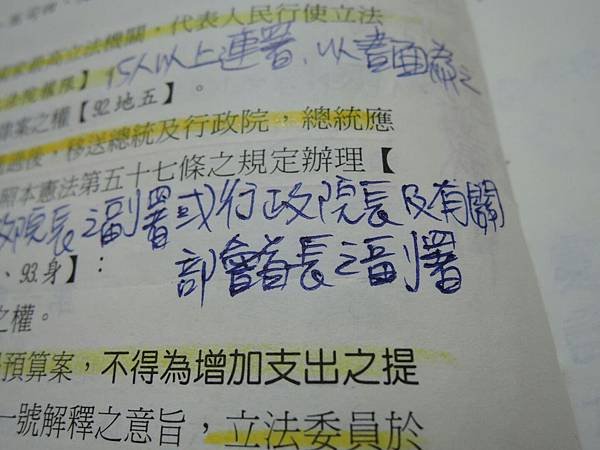 最高立法機關，代表人民行使立法
15人以上連署，以書面為之
案之權【92地五】。
後，移送總統及行政院，總統應
照本憲法第五十七條之規定辦理【
政院長之副署或行政院長及有關
部會首長之副署
、93.身】：
之權。
預算案，不得為增加支出之提
一號解釋之意旨，立法委員於